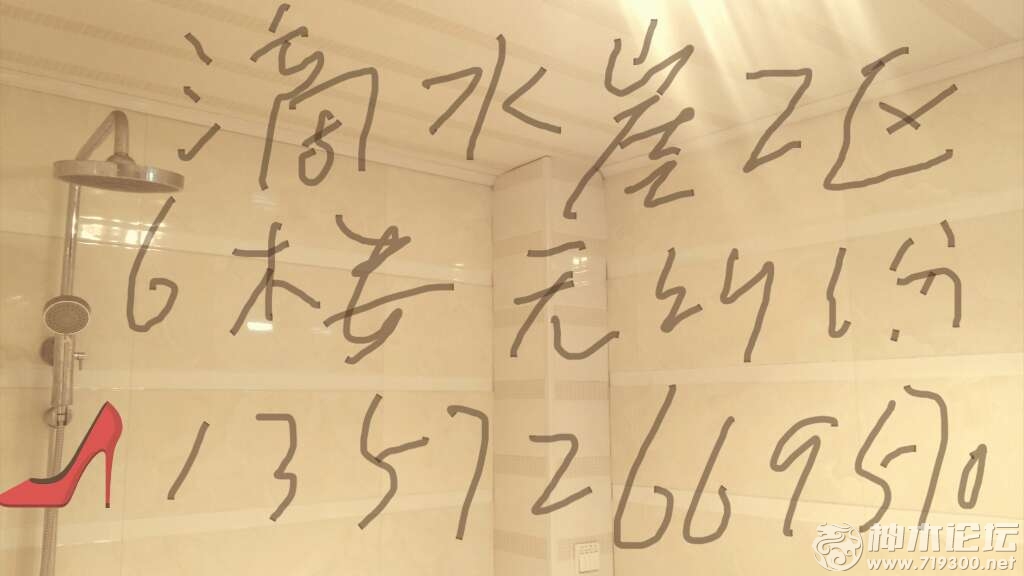 滴水崖2区
6楼 无纠纷
13572669570
神木论坛
www.719300.net